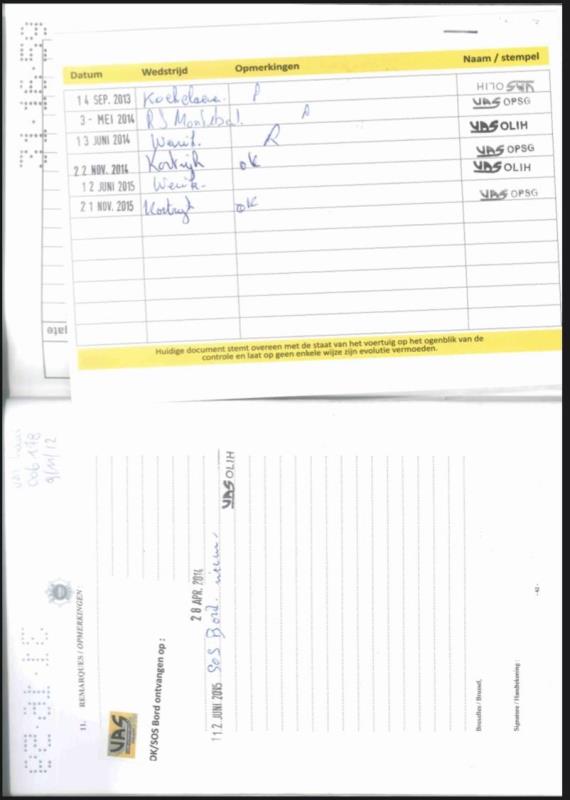 Datum Wedstrijd Opmerkingen Naam / stempel
14 SEP. 2013 VAS OLIH
3 - MEI 2014 VAS OPSG
13 JUNI 2014 R VAS OLIH
22 NOV. 2014 Kortrijk ok VAS OPSG
12 JUNI 2015 VAS OLIH
21 NOV. 2015 Kortrijk ok VAS OPSG
Huidige document stemt overeen met de staat van het voertuig op het ogenblik van de
controle en laat op geen enkele wijze zijn evolutie vermoeden.
late
006 118
9/11/12
11. REMARQUES / OPMERKINGEN :
VAS
DK/SOS Bord ontvangen op :
28 APR. 2014
12 JUNI 2015 SOS Bord. nieuw. VAS OLIH
Bruxelles / Brussel,
Signature / Handtekening :
- 42 -